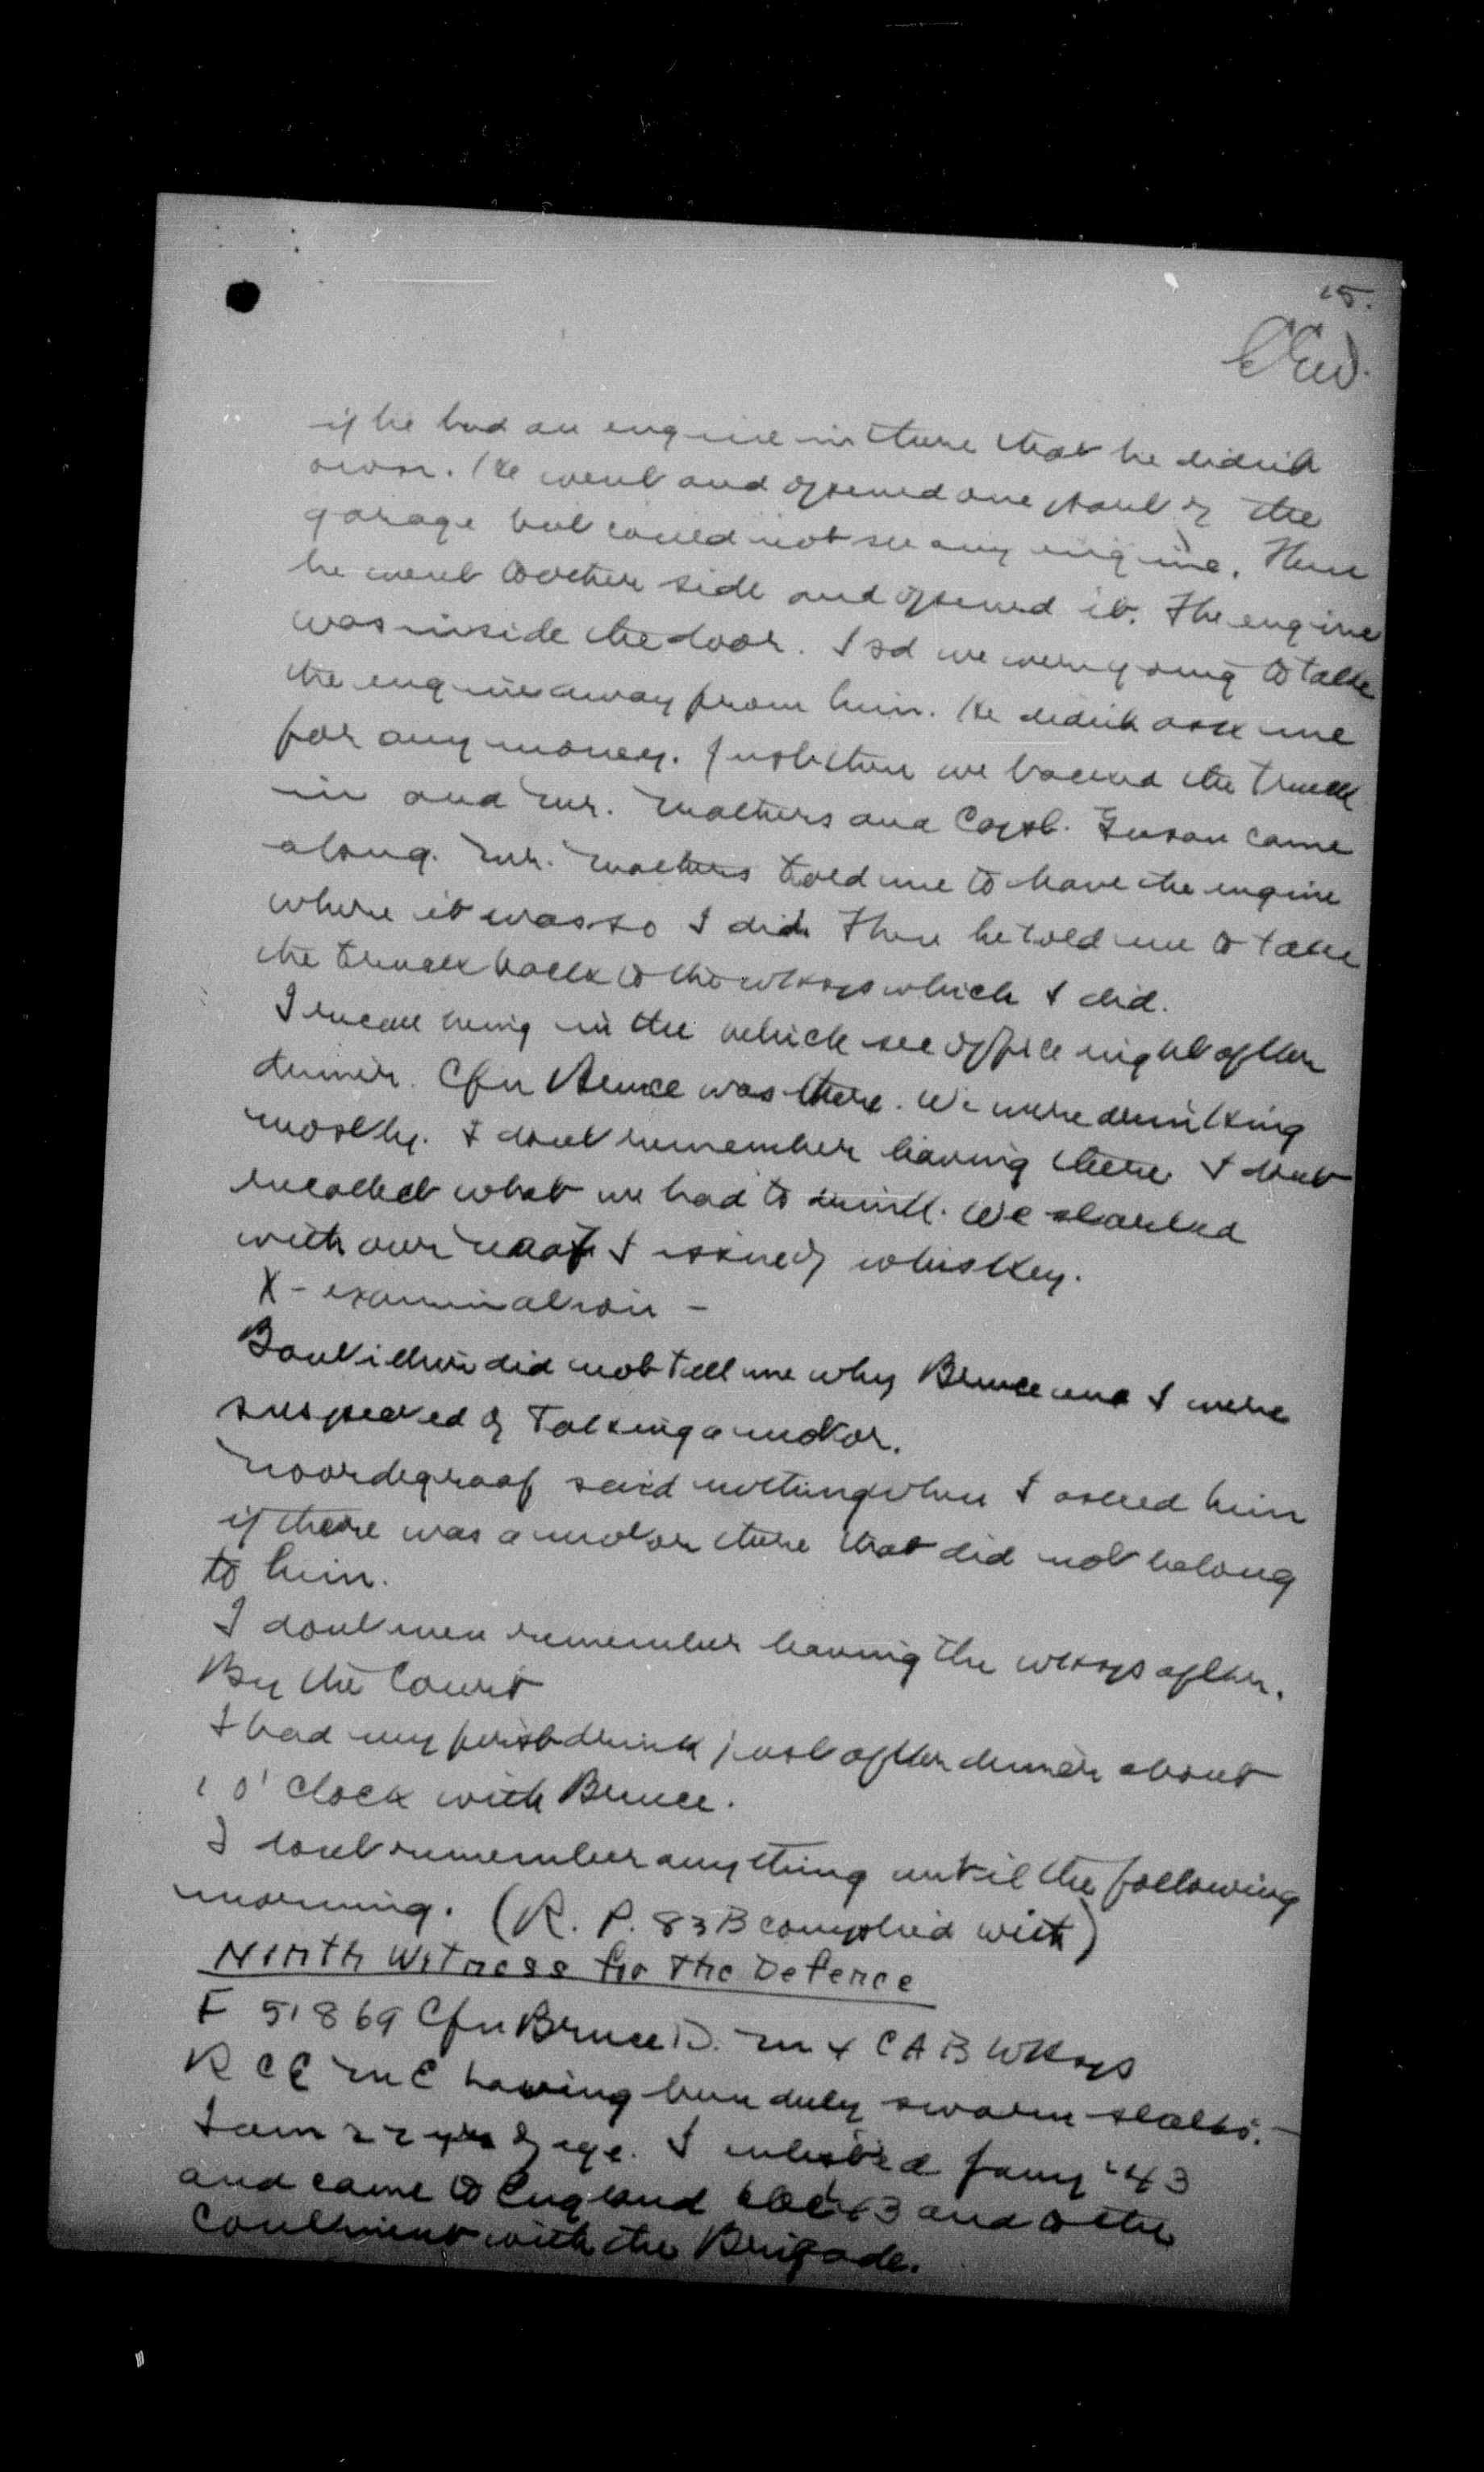 15.
if he had an engine in there that he didn't
own. He went and opened one part of the
garage but could not see any engine. Then
he went to other side and opened it. The engine
was inside the door. I sd we were going to take
the engine away from him. He didn't ask me
for any money. Just then we backed the truck
in and Mr. Mathers and Capt. came
along. Mr. Mathers told me to leave the engine
where it was so I did. Then he told me to take
the truck back to the wksps which I did.
I recall being in the vehicle sec office right after
dinner. Cfn Bruce was there. We were drinking
mostly. I dont remember leaving there I dont
recollect what we had to drink. We started
with our issue of whiskey.
X-examination -
did not tell me why Bruce and I were
suspected of taking a motor.
Noordegraaf said nothing when I asked him
if there was a motor there that did not belong
to him.
I dont even remember leaving the wksps after.
By the Court
I had my first drink just after dinner about
1 o'clock with Bruce.
I dont remember anything until the following
morning. (R.P. 83B complied with)
Ninth Witness for The Defence
F 51869 Cfn Bruce D. M 4 C A B Wksps
R C E M E having been duly sworn states: -
I am 22 yrs of age. I enlisted Jany '43
and came to England 43 and to the
Continent with the Brigade.